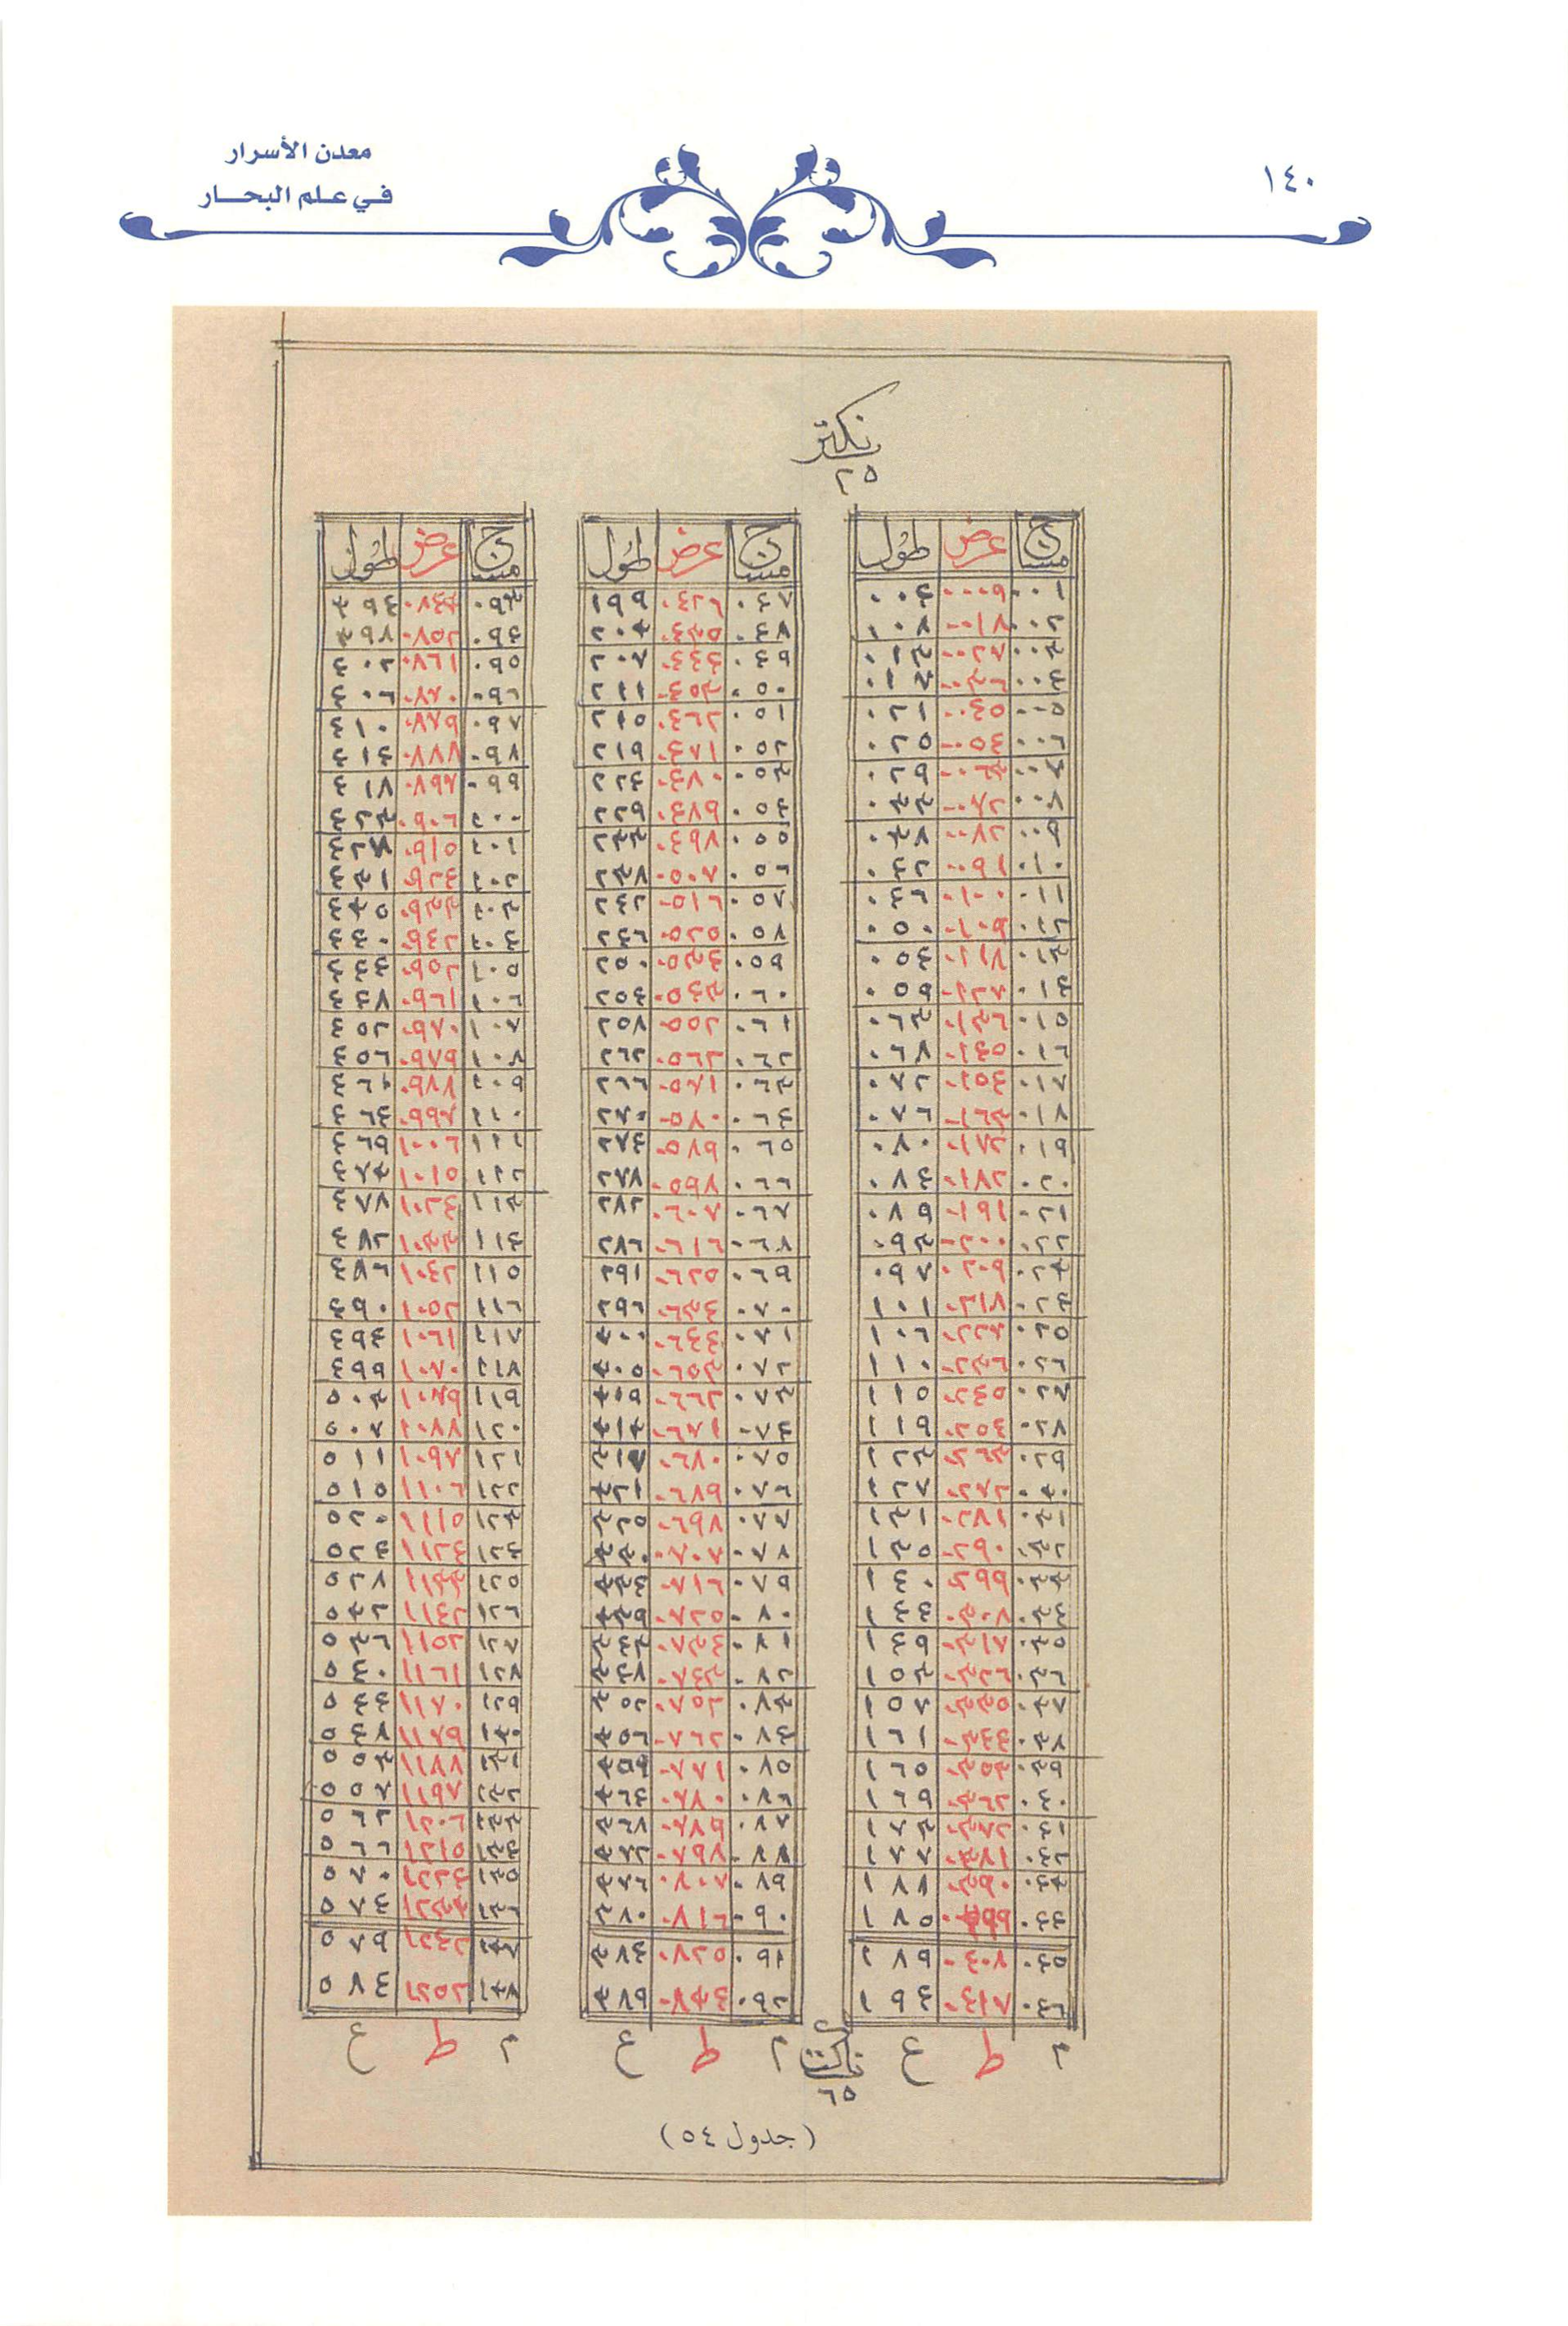 معدن الأسرار
١٤٠
في علم البحار
نكتر
٢٥
مساج عرض طول
٠٠١ ٠٠٠٩ ٠٠٤
٠٠٢ ٠٠١٨ ٠٠٨
٠٠٣ ٠٠٢٧ ٠١٣
٠٠٤ ٠٠٣٦ ٠١٧
٠٠٥ ٠٠٤٥ ٠٢١
٠٠٦ ٠٠٥٤ ٠٢٥
٠٠٧ ٠٠٦٣ ٠٢٩
٠٠٨ ٠٠٧٢ ٠٣٣
٠٠٩ ٠٠٨٢ ٠٣٨
٠١٠ ٠٠٩١ ٠٤٢
٠١١ ٠١٠٠ ٠٤٦
٠١٢ ٠١٠٩ ٠٥٠
٠١٣ ٠١١٨ ٠٥٤
٠١٤ ٠١٢٧ ٠٥٩
٠١٥ ٠١٣٦ ٠٦٣
٠١٦ ٠١٤٥ ٠٦٨
٠١٧ ٠١٥٤ ٠٧٢
٠١٨ ٠١٦٣ ٠٧٦
٠١٩ ٠١٧٢ ٠٨٠
٠٢٠ ٠١٨٢ ٠٨٤
٠٢١ ٠١٩١ ٠٨٩
٠٢٢ ٠٢٠٠ ٠٩٣
٠٢٣ ٠٢٠٩ ٠٩٧
٠٢٤ ٠٢١٨ ١٠١
٠٢٥ ٠٢٢٧ ١٠٦
٠٢٦ ٠٢٣٦ ١١٠
٠٢٧ ٠٢٤٥ ١١٥
٠٢٨ ٠٢٥٤ ١١٩
٠٢٩ ٠٢٦٣ ١٢٣
٠٣٠ ٠٢٧٢ ١٢٧
٠٣١ ٠٢٨١ ١٣١
٠٣٢ ٠٢٩٠ ١٣٥
٠٣٣ ٠٢٩٩ ١٤٠
٠٣٤ ٠٣٠٨ ١٤٤
٠٣٥ ٠٣١٧ ١٤٩
٠٣٦ ٠٣٢٦ ١٥٣
٠٣٧ ٠٣٣٥ ١٥٧
٠٣٨ ٠٣٤٤ ١٦١
٠٣٩ ٠٣٥٣ ١٦٥
٠٤٠ ٠٣٦٢ ١٦٩
٠٤١ ٠٣٧٢ ١٧٣
٠٤٢ ٠٣٨١ ١٧٧
٠٤٣ ٠٣٩٠ ١٨١
٠٤٤ ٠٣٩٩ ١٨٥
٠٤٥ ٠٤٠٨ ١٨٩
٠٤٦ ٠٤١٨ ١٩٤
م ط ع
مساج عرض طول
٠٤٧ ٠٤٢٦ ١٩٩
٠٤٨ ٠٤٣٥ ٢٠٣
٠٤٩ ٠٤٤٤ ٢٠٧
٠٥٠ ٠٤٥٣ ٢١١
٠٥١ ٠٤٦٢ ٢١٥
٠٥٢ ٠٤٧١ ٢١٩
٠٥٣ ٠٤٨٠ ٢٢٤
٠٥٤ ٠٤٨٩ ٢٢٩
٠٥٥ ٠٤٩٨ ٢٣٣
٠٥٦ ٠٥٠٧ ٢٣٨
٠٥٧ ٠٥١٦ ٢٤٢
٠٥٨ ٠٥٢٥ ٢٤٦
٠٥٩ ٠٥٣٤ ٢٥٠
٠٦٠ ٠٥٤٣ ٢٥٤
٠٦١ ٠٥٥٢ ٢٥٨
٠٦٢ ٠٥٦٢ ٢٦٢
٠٦٣ ٠٥٧١ ٢٦٦
٠٦٤ ٠٥٨٠ ٢٧٠
٠٦٥ ٠٥٨٩ ٢٧٤
٠٦٦ ٠٥٩٨ ٢٧٨
٠٦٧ ٠٦٠٧ ٢٨٢
٠٦٨ ٠٦١٦ ٢٨٦
٠٦٩ ٠٦٢٥ ٢٩١
٠٧٠ ٠٦٣٤ ٢٩٦
٠٧١ ٠٦٤٤ ٣٠٠
٠٧٢ ٠٦٥٣ ٣٠٥
٠٧٣ ٠٦٦٢ ٣٠٩
٠٧٤ ٠٦٧١ ٣١٣
٠٧٥ ٠٦٨٠ ٣١٧
٠٧٦ ٠٦٨٩ ٣٢١
٠٧٧ ٠٦٩٨ ٣٢٥
٠٧٨ ٠٧٠٧ ٣٣٠
٠٧٩ ٠٧١٦ ٣٣٤
٠٨٠ ٠٧٢٥ ٣٣٩
٠٨١ ٠٧٣٤ ٣٤٣
٠٨٢ ٠٧٤٣ ٣٤٧
٠٨٣ ٠٧٥٢ ٣٥٢
٠٨٤ ٠٧٦٢ ٣٥٦
٠٨٥ ٠٧٧١ ٣٥٩
٠٨٦ ٠٧٨٠ ٣٦٤
٠٨٧ ٠٧٨٩ ٣٦٨
٠٨٨ ٠٧٩٨ ٣٧٢
٠٨٩ ٠٨٠٧ ٣٧٦
٠٩٠ ٠٨١٦ ٣٨٠
٠٩١ ٠٨٢٥ ٣٨٤
٠٩٢ ٠٨٣٤ ٣٨٩
م ط ع
مساج عرض طول
٠٩٣ ٠٨٤٣ ٣٩٤
٠٩٤ ٠٨٥٢ ٣٩٨
٠٩٥ ٠٨٦١ ٤٠٢
٠٩٦ ٠٨٧٠ ٤٠٦
٠٩٧ ٠٨٧٩ ٤١٠
٠٩٨ ٠٨٨٨ ٤١٤
٠٩٩ ٠٨٩٧ ٤١٨
١٠٠ ٠٩٠٦ ٤٢٣
١٠١ ٠٩١٥ ٤٢٧
١٠٢ ٠٩٢٤ ٤٣١
١٠٣ ٠٩٣٣ ٤٣٥
١٠٤ ٠٩٤٢ ٤٤٠
١٠٥ ٠٩٥٢ ٤٤٤
١٠٦ ٠٩٦١ ٤٤٨
١٠٧ ٠٩٧٠ ٤٥٢
١٠٨ ٠٩٧٩ ٤٥٦
١٠٩ ٠٩٨٨ ٤٦١
١١٠ ٠٩٩٧ ٤٦٤
١١١ ١٠٠٦ ٤٦٩
١١٢ ١٠١٥ ٤٧٣
١١٣ ١٠٢٤ ٤٧٨
١١٤ ١٠٣٣ ٤٨٢
١١٥ ١٠٤٢ ٤٨٦
١١٦ ١٠٥٢ ٤٩٠
١١٧ ١٠٦١ ٤٩٤
١١٨ ١٠٧٠ ٤٩٩
١١٩ ١٠٧٩ ٥٠٣
١٢٠ ١٠٨٨ ٥٠٧
١٢١ ١٠٩٧ ٥١١
١٢٢ ١١٠٦ ٥١٥
١٢٣ ١١١٥ ٥٢٠
١٢٤ ١١٢٤ ٥٢٤
١٢٥ ١١٣٣ ٥٢٨
١٢٦ ١١٤٢ ٥٣٢
١٢٧ ١١٥٢ ٥٣٦
١٢٨ ١١٦١ ٥٤٠
١٢٩ ١١٧٠ ٥٤٤
١٣٠ ١١٧٩ ٥٤٨
١٣١ ١١٨٨ ٥٥٣
١٣٢ ١١٩٧ ٥٥٧
١٣٣ ١٢٠٦ ٥٦٢
١٣٤ ١٢١٥ ٥٦٦
١٣٥ ١٢٢٤ ٥٧٠
١٣٦ ١٢٣٣ ٥٧٤
١٣٧ ١٢٤٢ ٥٧٩
١٣٨ ١٢٥٢ ٥٨٤
م ط ع
٦٥
(جدول ٥٤)